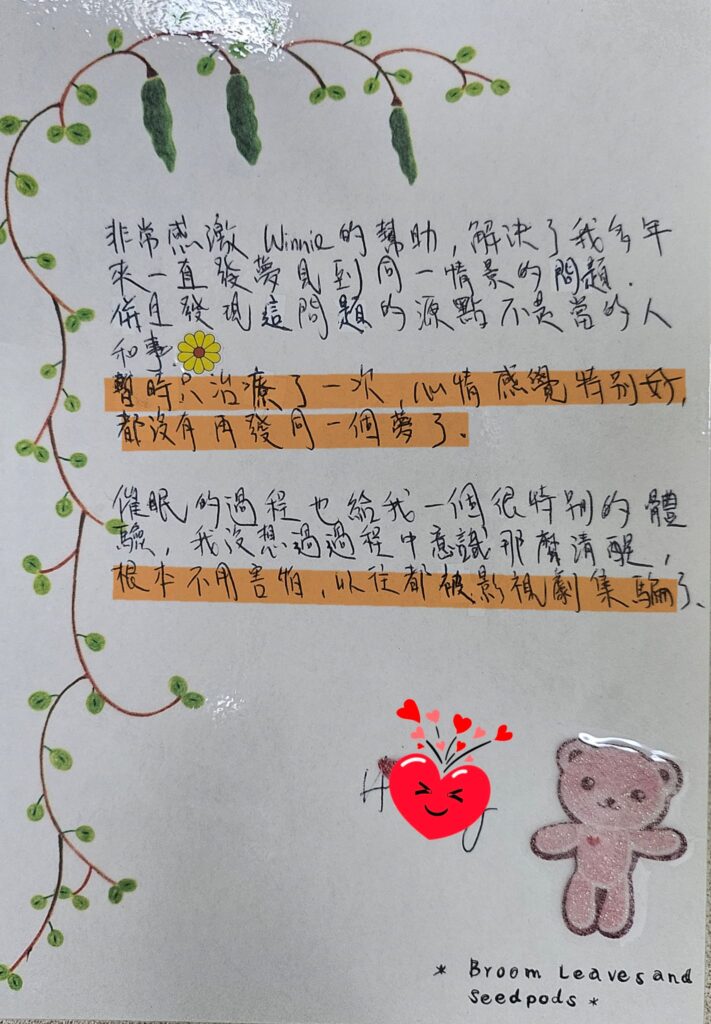 非常感激 Winnie 的幫助，解決了我多年
來一直發夢見到同一情景的問題．
併且發現這問題的源點不是當的人
和事．
暫時只治療了一次，心情感覺特別好，
都沒有再發同一個夢了．
催眠的過程也給我一個很特別的體
驗，我沒想過過程中意識那麼清醒，
根本不用害怕，以往都被影視劇集騙了、
* Broom Leaves and
Seedpods *